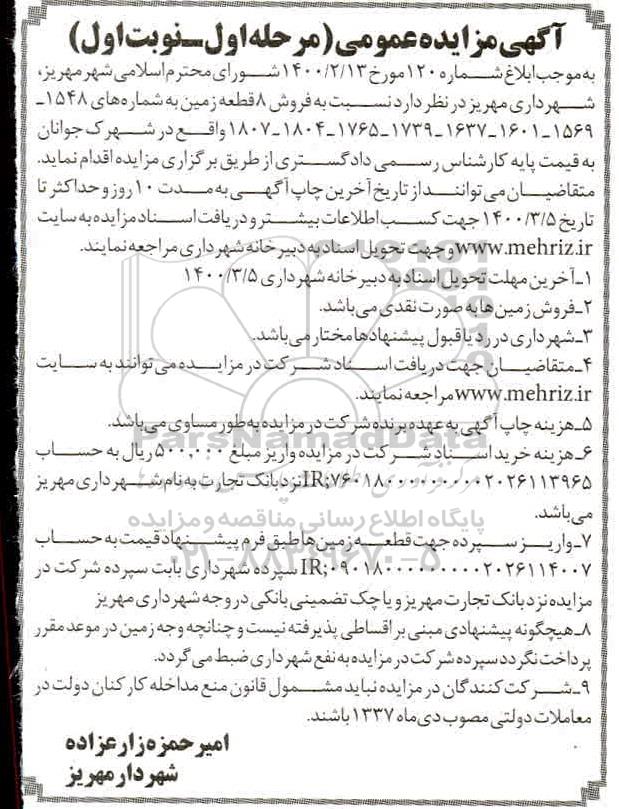 آگهی مزایده عمومی (مرحله اول ـ نوبت اول)
به موجب ابلاغ شماره ۱۲۰ مورخ ۱۴۰۰/۲/۱۳ شورای محترم اسلامی شهر مهریز،
شهرداری مهریز در نظر دارد نسبت به فروش ۸ قطعه زمین به شماره‌های ۱۵۴۸ـ
۱۵۶۹ـ۱۶۰۱ـ۱۶۳۷ـ۱۷۳۹ـ۱۷۶۵ـ۱۸۰۴ـ۱۸۰۷ واقع در شهرک جوانان
به قیمت پایه کارشناس رسمی دادگستری از طریق برگزاری مزایده اقدام نماید.
متقاضیان می‌توانند از تاریخ آخرین چاپ آگهی به مدت ۱۰ روز و حداکثر تا
تاریخ ۱۴۰۰/۳/۵ جهت کسب اطلاعات بیشتر و دریافت اسناد مزایده به سایت
www.mehriz.ir و جهت تحویل اسناد به دبیرخانه شهرداری مراجعه نمایند.
۱ـ آخرین مهلت تحویل اسناد به دبیرخانه شهرداری ۱۴۰۰/۳/۵
۲ـ فروش زمین‌ها به صورت نقدی می‌باشد.
۳ـ شهرداری در رد یا قبول پیشنهادها مختار می‌باشد.
۴ـ متقاضیان جهت دریافت اسناد شرکت در مزایده می‌توانند به سایت
www.mehriz.ir مراجعه نمایند.
۵ـ هزینه چاپ آگهی به عهده برنده شرکت در مزایده به طور مساوی می‌باشد.
۶ـ هزینه خرید اسناد شرکت در مزایده واریز مبلغ ۵۰۰,۰۰۰ ریال به حساب
IR;۷۶۰۱۸۰۰۰۰۰۰۰۰۰۰۲۰۲۶۱۱۳۹۶۵ نزد بانک تجارت به نام شهرداری مهریز
می‌باشد.
۷ـ واریز سپرده جهت قطعه زمین‌ها طبق فرم پیشنهاد قیمت به حساب
IR;۰۹۰۱۸۰۰۰۰۰۰۰۰۰۰۲۰۲۶۱۱۴۰۰۷ سپرده شهرداری بابت سپرده شرکت در
مزایده نزد بانک تجارت مهریز و یا چک تضمینی بانکی در وجه شهرداری مهریز
۸ـ هیچگونه پیشنهادی مبنی بر اقساطی پذیرفته نیست و چنانچه وجه زمین در موعد مقرر
پرداخت نگردد سپرده شرکت در مزایده به نفع شهرداری ضبط می‌گردد.
۹ـ شرکت کنندگان در مزایده نباید مشمول قانون منع مداخله کارکنان دولت در
معاملات دولتی مصوب دی‌ماه ۱۳۳۷ باشند.
امیرحمزه زارعزاده
شهردار مهریز
ParsNamadData
پایگاه اطلاع رسانی مناقصه و مزایده
۰۲۱-۸۸۳۴۹۶۷۰-۵